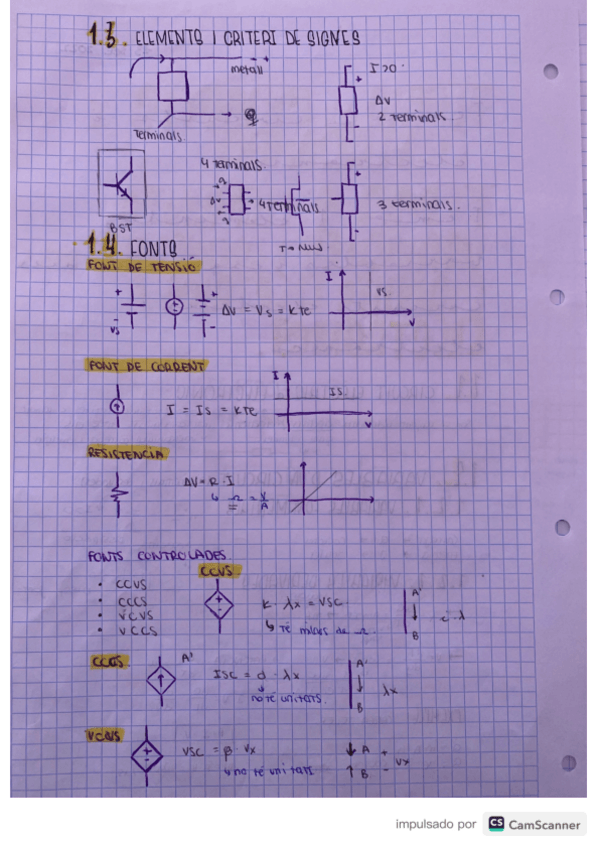 1.3. ELEMENTS I CRITERI DE SIGNES
metall - +
I>0.
+
ΔV
2 terminals.
-
Terminals.
4 terminals.
4 terminals
3 terminals.
BST
1.4. FONTS
FONT DE TENSIÓ
+ + +
I
VS
ΔV = Vs = kTe
- Vs
-
V
FONT DE CORRENT
I
IS
I = Is = kTe
V
RESISTENCIA
ΔV = R · I
↳ Ω = V/A
FONTS CONTROLADES
CCVS
• CCVS
• CCCS
• VCVS
• VCCS
+ -
k · λx = VSC
↳ Té
de Ω.
A'
↓
B
CCCS
A'
ISC = d · λx
no té unitats.
A'
↓
B
λx
VCVS
+ -
VSC = β · Vx
↳ no té unitats
↓ A +
↑ B -
Vx
impulsado por CS CamScanner